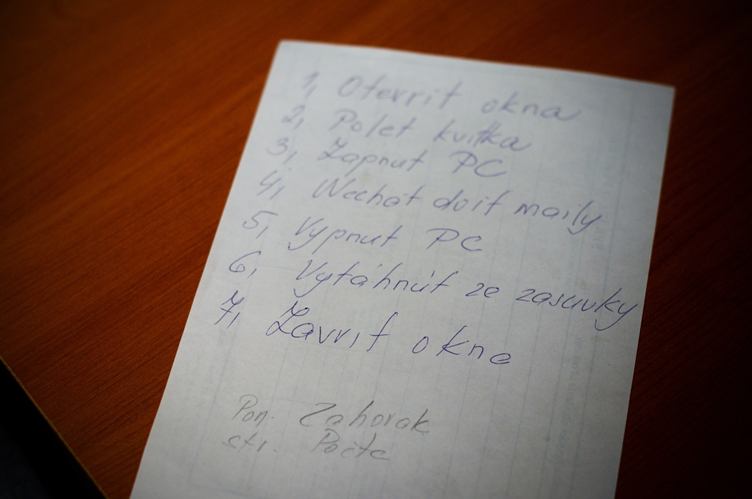 1, Otevrit okna
2, Polet kvitka
3, Zapnut PC
4, Nechat dojit maily
5, Vypnut PC
6, Vytáhnút ze zasuvky
7, Zavrit okna
Pon. Zahorak
str. Pošta